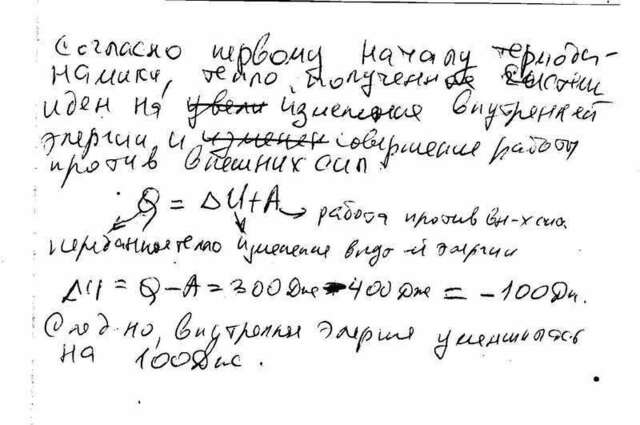 Согласно первому началу термоди-
намики, тепло, полученное системой
идет на увели изменение внутренней
энергии и изменен совершение работы
против внешних сил.
Q = ΔU+A → работа против вн-х сил
переданное тепло изменение внут-й энергии
ΔU = Q-A = 300 Дж - 400 Дж = -100 Дж.
След-но, внутрення энергия уменшилась
на 100 Дж.